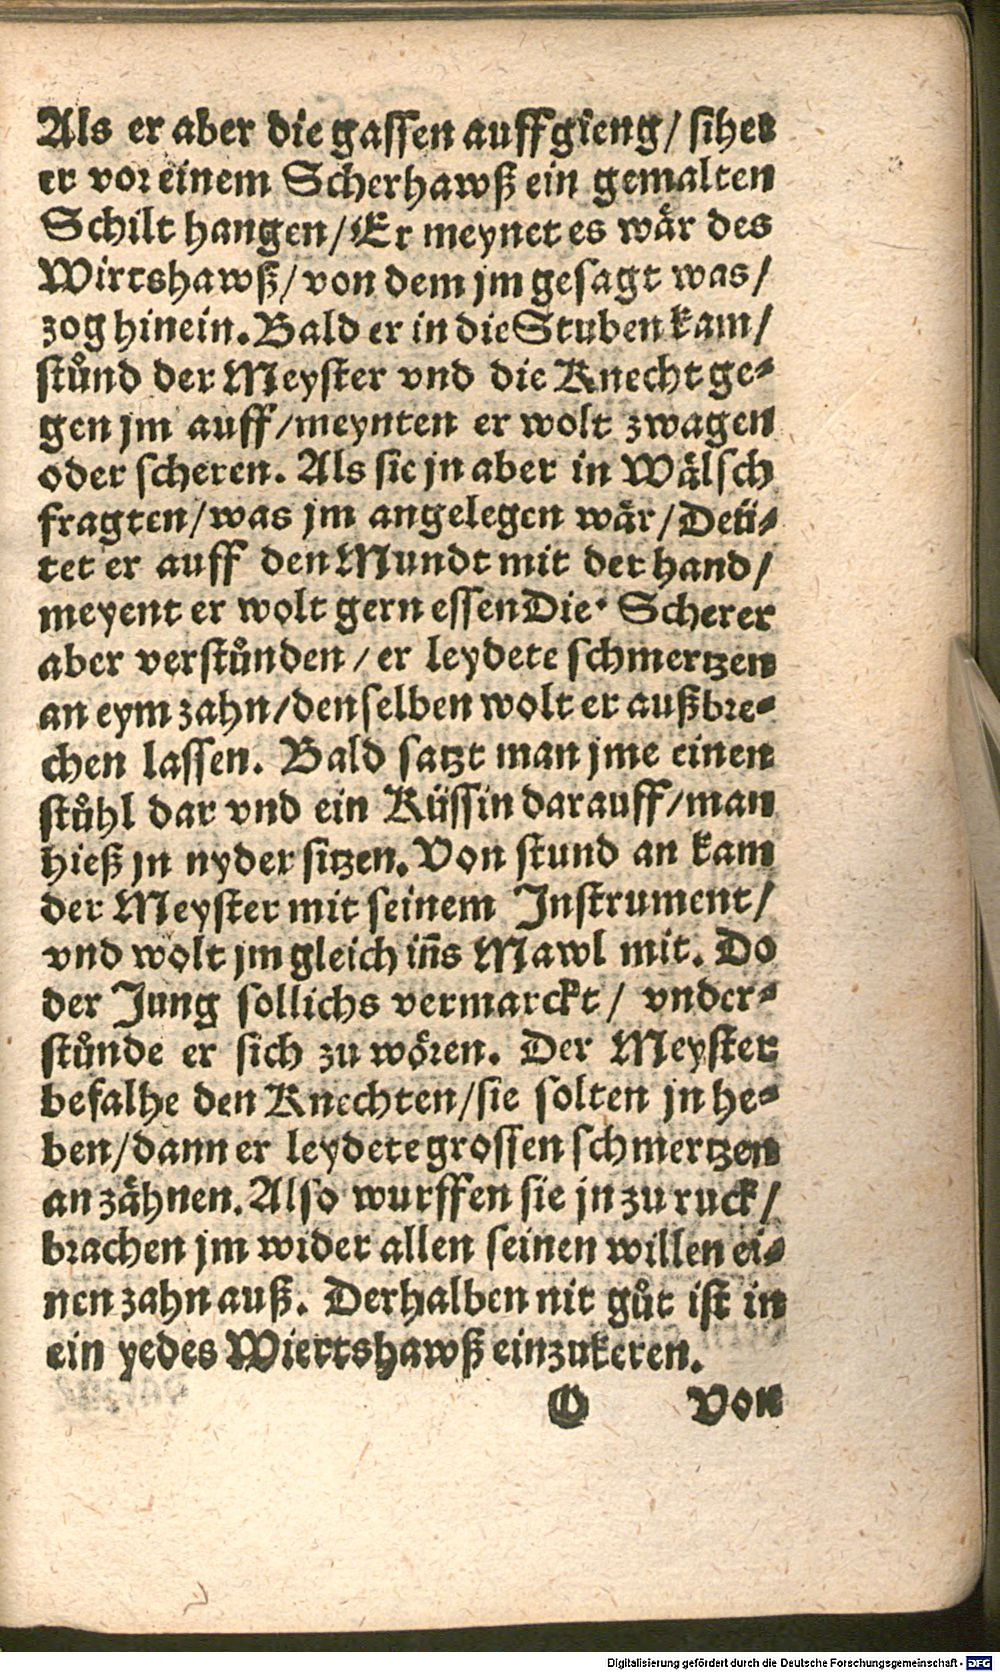 Als er aber die gassen auffgieng / sihet
er vor einem Scherhawß ein gemalten
Schilt hangen / Er meynet es wår des
Wirtshawß / von dem jm gesagt was /
zog hinein. Bald er in die Stuben kam /
stůnd der Meyster vnd die Knecht ge⸗
gen jm auff / meynten er wolt zwagen
oder scheren. Als sie jn aber in Wålsch
fragten / was jm angelegen wår / Deü⸗
tet er auff den Mundt mit der hand /
meyent er wolt gern essen Die· Scherer
aber verstůnden / er leydete schmertzen
an eym zahn / denselben wolt er außbre⸗
chen lassen. Bald satzt man jme einen
stůhl dar vnd ein Küssin darauff / man
hieß jn nyder sitzen. Von stund an kam
der Meyster mit seinem Instrument /
vnd wolt jm gleich iñs Mawl mit. Do
der Jung sollichs vermarckt / vnder⸗
stůnde er sich zu wören. Der Meyster
befalhe den Knechten / sie solten jn he⸗
ben / dann er leydete grossen schmertzen
an zåhnen. Also wurffen sie jn zu ruck /
brachen jm wider allen seinen willen ei⸗
nen zahn auß. Derhalben nit gůt ist in
ein yedes Wiertshawß einzukeren.
O von
Digitalisierung gefördert durch die Deutsche Forschungsgemeinschaft - DFG